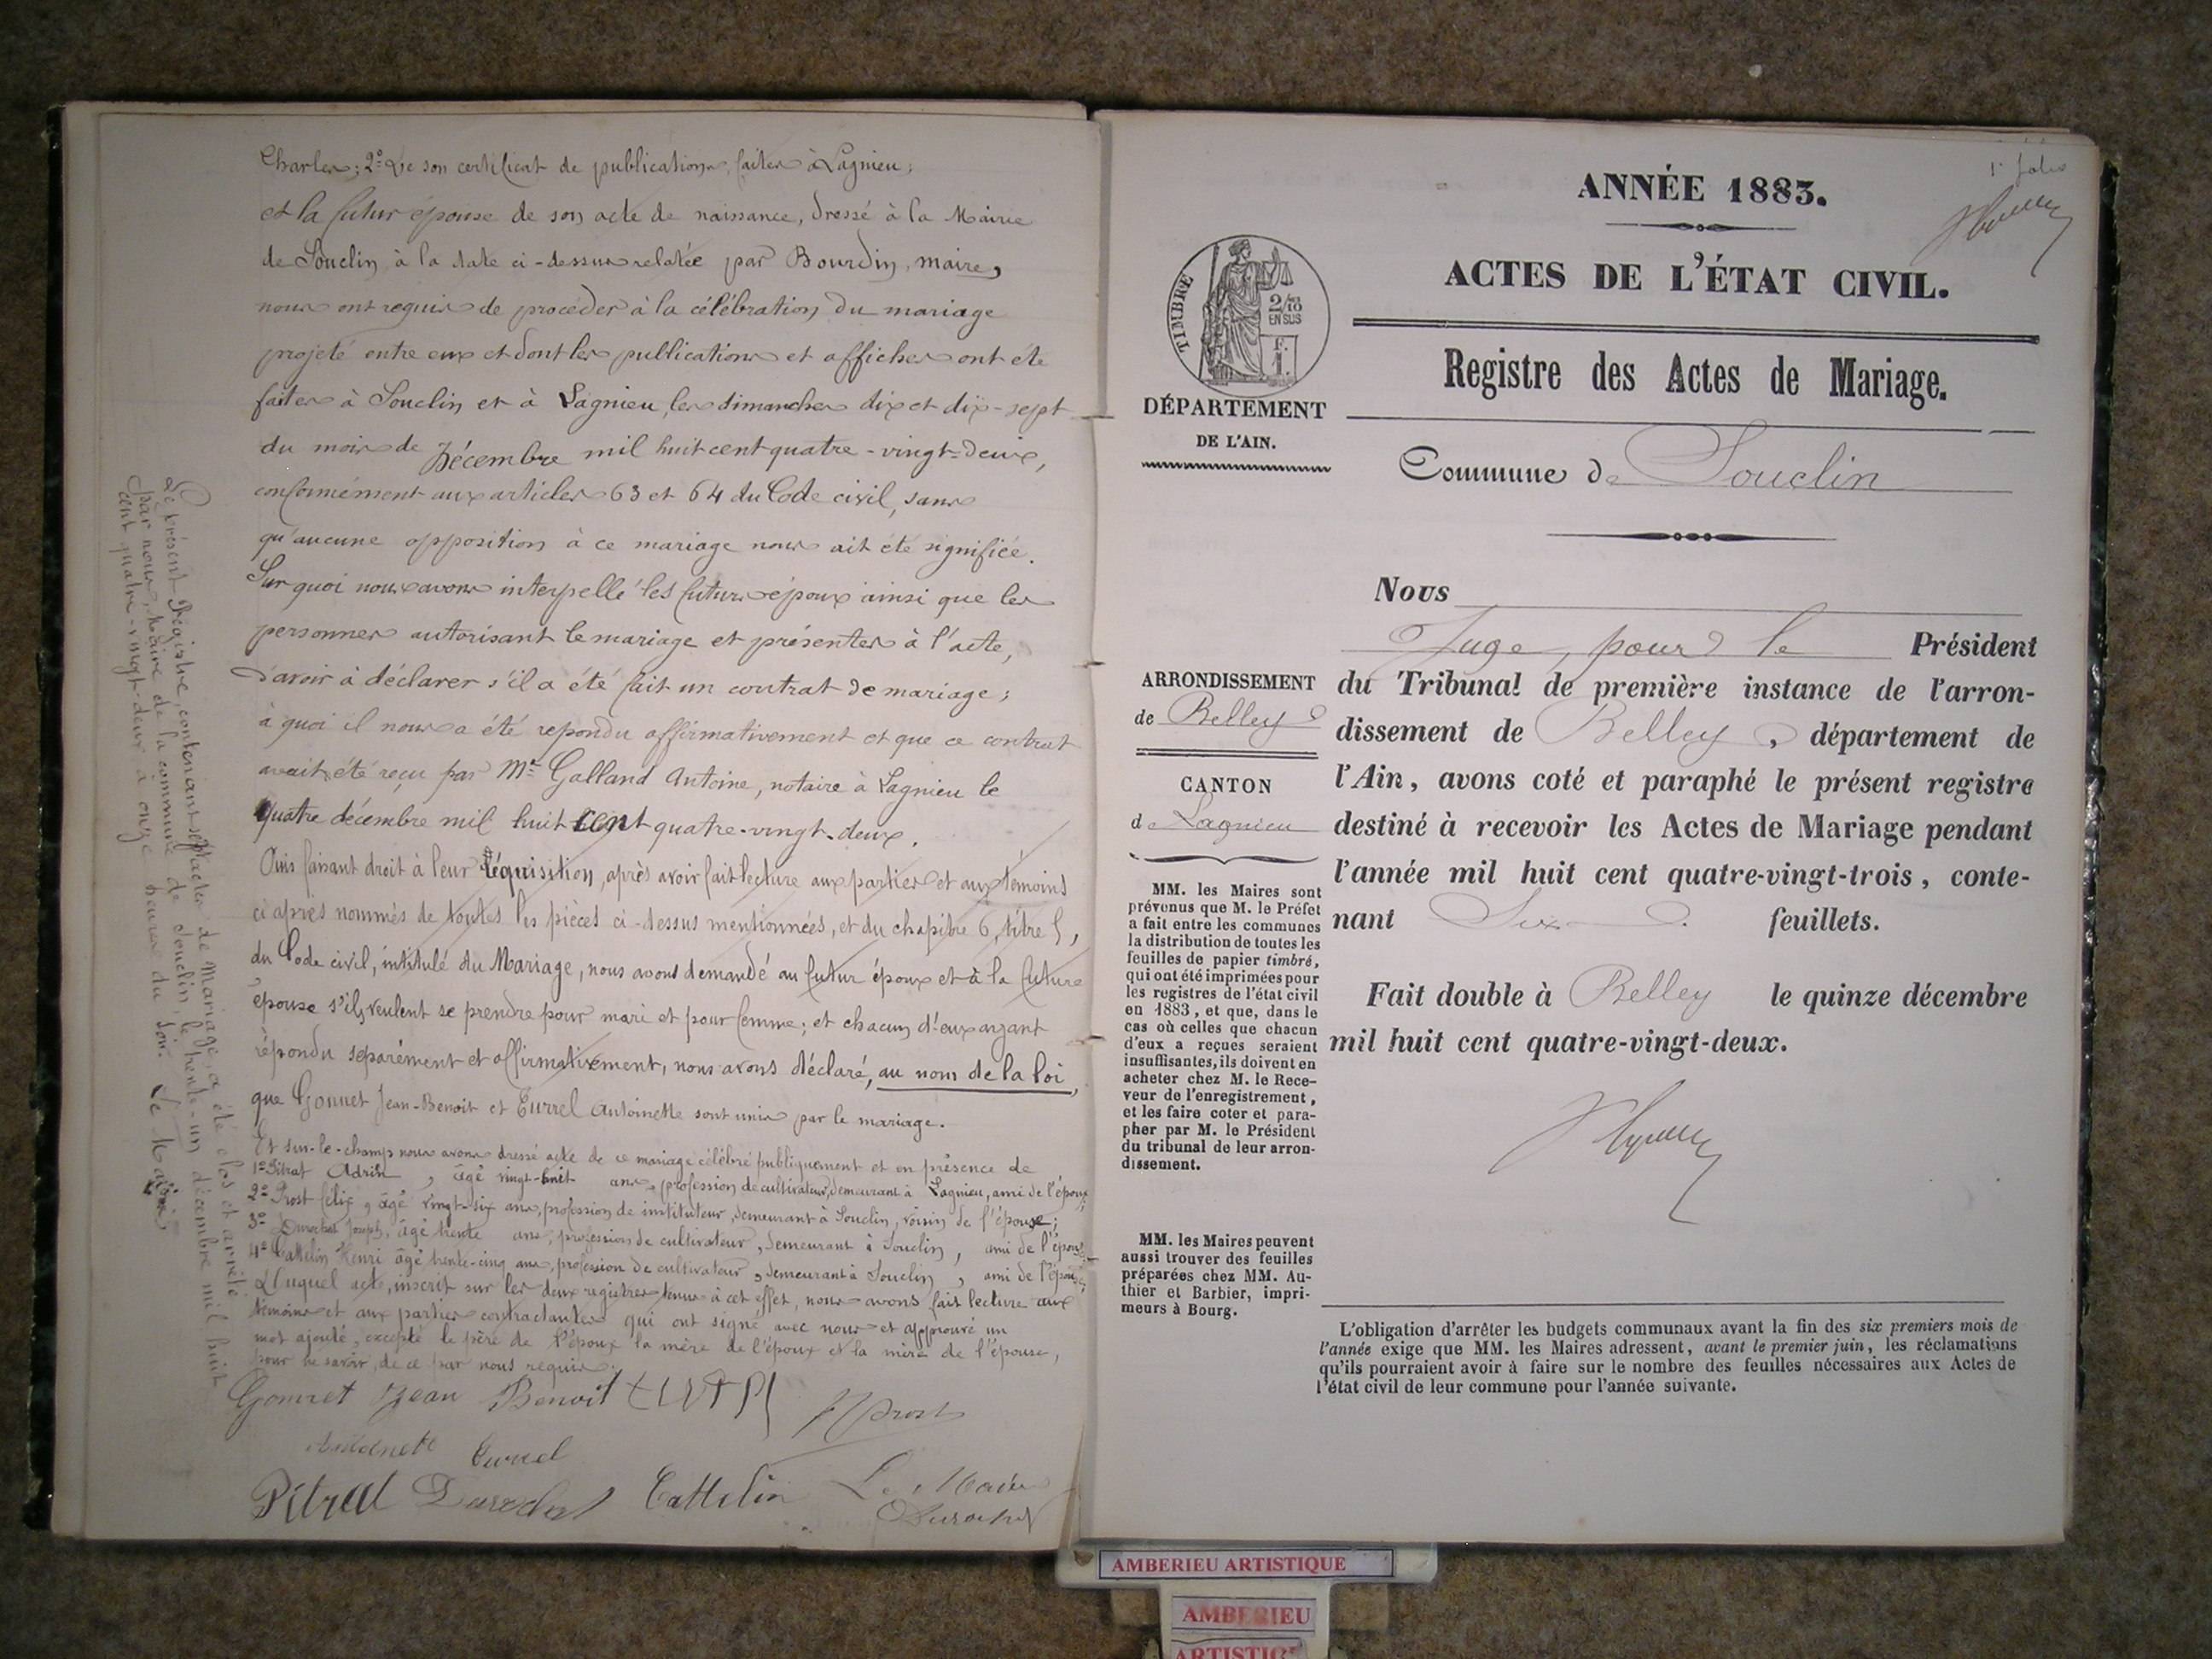 Charles; 2º De son certificat de publications, faites à Lagnieu;
et la futur épouse de son acte de naissance, dressé à la Mairie
de Souclin, à la date ci-dessus relatée par Bourdin, maire,
nous ont requis de procéder à la célébration du mariage
projeté entre eux et dont les publications et affiches ont été
faites à Souclin et à Lagnieu, les dimanches dix et dix-sept
du mois de Décembre mil huit cent quatre-vingt-deux,
conformément aux articles 63 et 64 du Code civil, sans
qu'aucune opposition à ce mariage nous ait été signifiée.
Sur quoi nous avons interpellé les futurs époux ainsi que les
personnes autorisant le mariage et présentes à l'acte,
d'avoir à déclarer s'il a été fait un contrat de mariage;
à quoi il nous a été repondu affirmativement et que ce contrat
avait été reçu par Mᵉ Galland Antoine, notaire à Lagnieu le
quatre décembre mil huit cent quatre-vingt-deux.
Puis faisant droit à leur réquisition, après avoir fait lecture aux parties et aux témoins
ci après nommés de toutes les pièces ci-dessus mentionnées, et du chapitre 6, titre 5,
du Code civil, intitulé du Mariage, nous avons demandé au futur époux et à la future
épouse s'ils veulent se prendre pour mari et pour femme; et chacun d'eux ayant
répondu separément et affirmativement, nous avons déclaré, au nom de la loi,
que Gonnet Jean-Benoit et Eurrel Antoinette sont unis par le mariage.
Et sur-le-champ nous avons dressé acte de ce mariage célébré publiquement et en présence de
1º Pitrat Adrin, âgé vingt-huit ans, profession de cultivateur, demeurant à Lagnieu, ami de l'époux;
2º Prost félix, âgé vingt-six ans, profession de instituteur, demeurant à Souclin, voisin de l'épouse;
3º Durochat Joseph, âgé trente ans, profession de cultivateur, demeurant à Souclin, ami de l'époux;
4º Cattelin Henri âgé trente-cinq ans, profession de cultivateur, demeurant à Souclin, ami de l'époux;
Duquel acte, inscrit sur les deux registres tenus à cet effet, nous avons fait lecture aux
témoins et aux parties contractantes qui ont signé avec nous et approuvé un
mot ajouté, excepté le père de l'époux la mère de l'époux et la mère de l'épouse,
pour ne savoir, de ce par nous requis.
Gonnet Jean Benoit F Prost
Antoinette Eurrel
Pitrat Durochat Cattelin Le Maire
Durochat
Le présent Régistre, contenant sept actes de Mariage, a été clos et arrêté
par nous, Maire de la commune de Souclin, le trente-un décembre mil huit
cent quatre-vingt-deux à onze heures du soir. Le Maire,
1er folio
ANNÉE 1883.
ACTES DE L'ÉTAT CIVIL.
Registre des Actes de Mariage.
Commune de Souclin
TIMBRE
2/10
EN SUS
F.
1.
DÉPARTEMENT
DE L'AIN.
ARRONDISSEMENT
de Belley
CANTON
de Lagnieu
MM. les Maires sont
prévenus que M. le Préfet
a fait entre les communes
la distribution de toutes les
feuilles de papier timbré,
qui ont été imprimées pour
les registres de l'état civil
en 1883, et que, dans le
cas où celles que chacun
d'eux a reçues seraient
insuffisantes, ils doivent en
acheter chez M. le Rece-
veur de l'enregistrement,
et les faire coter et para-
pher par M. le Président
du tribunal de leur arron-
dissement.
MM. les Maires peuvent
aussi trouver des feuilles
préparées chez MM. Au-
thier et Barbier, impri-
meurs à Bourg.
Nous
Juge, pour le Président
du Tribunal de première instance de l'arron-
dissement de Belley, département de
l'Ain, avons coté et paraphé le présent registre
destiné à recevoir les Actes de Mariage pendant
l'année mil huit cent quatre-vingt-trois, conte-
nant Six feuillets.
Fait double à Belley le quinze décembre
mil huit cent quatre-vingt-deux.
L'obligation d'arrêter les budgets communaux avant la fin des six premiers mois de
l'année exige que MM. les Maires adressent, avant le premier juin, les réclamations
qu'ils pourraient avoir à faire sur le nombre des feuilles nécessaires aux Actes de
l'état civil de leur commune pour l'année suivante.
AMBERIEU ARTISTIQUE
AMBERIEU
ARTISTIQUE